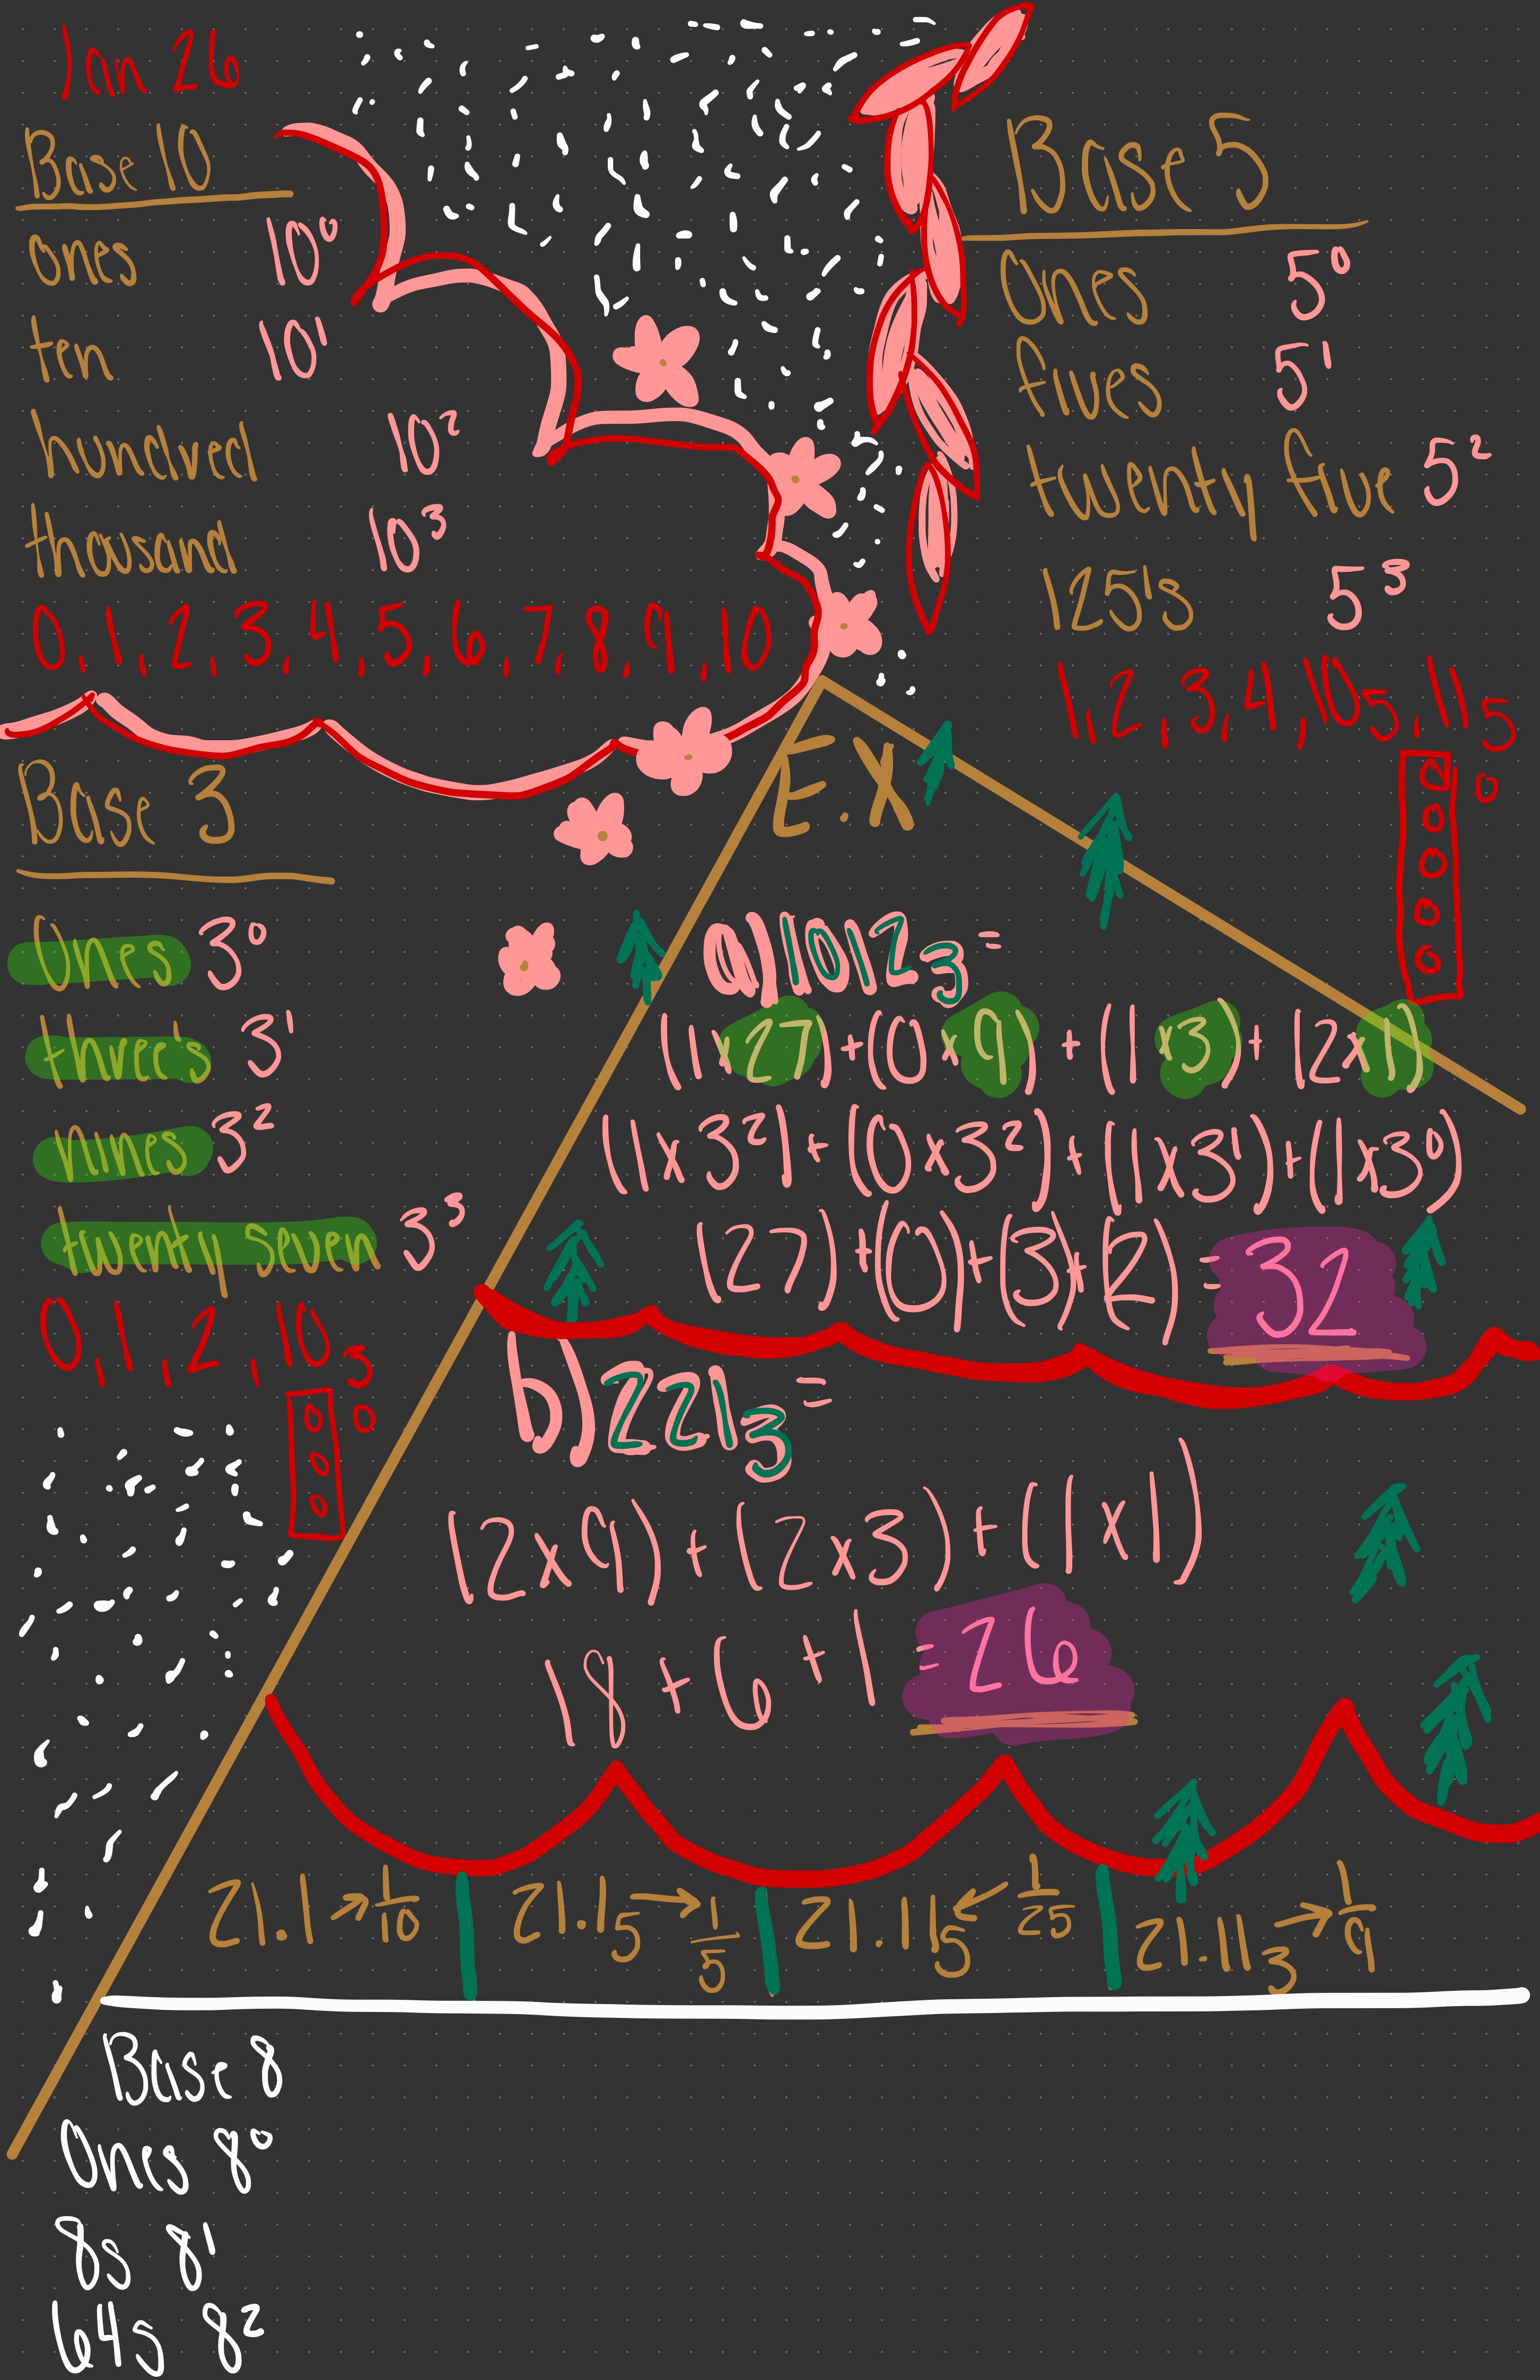 Jan 26
Base 10
ones 10⁰
ten 10¹
hundred 10²
thousand 10³
0, 1, 2, 3, 4, 5, 6, 7, 8, 9, 10
Base 5
Ones 5⁰
fives 5¹
twenty five 5²
125's 5³
1, 2, 3, 4, 10₅, 11₅
Base 3
Ones 3⁰
three's 3¹
nines 3²
twenty seven 3³
0, 1, 2, 10₃
E.X
a) 1012₃ =
(1 x 27) + (0 x 9) + (1 x 3) + (2 x 1)
(1 x 3²) + (0 x 3²) + (1 x 3¹) + (1 x 3⁰)
(27) + (0) + (3) + (2) = 32
b) 221₃ =
(2 x 9) + (2 x 3) + (1 x 1)
18 + 6 + 1 = 26
21.1 → 1/10
21.1₅ → 1/5
21.11₅ ← 1/25
21.11₃ → 1/9
Base 8
Ones 8⁰
8s 8¹
64s 8²